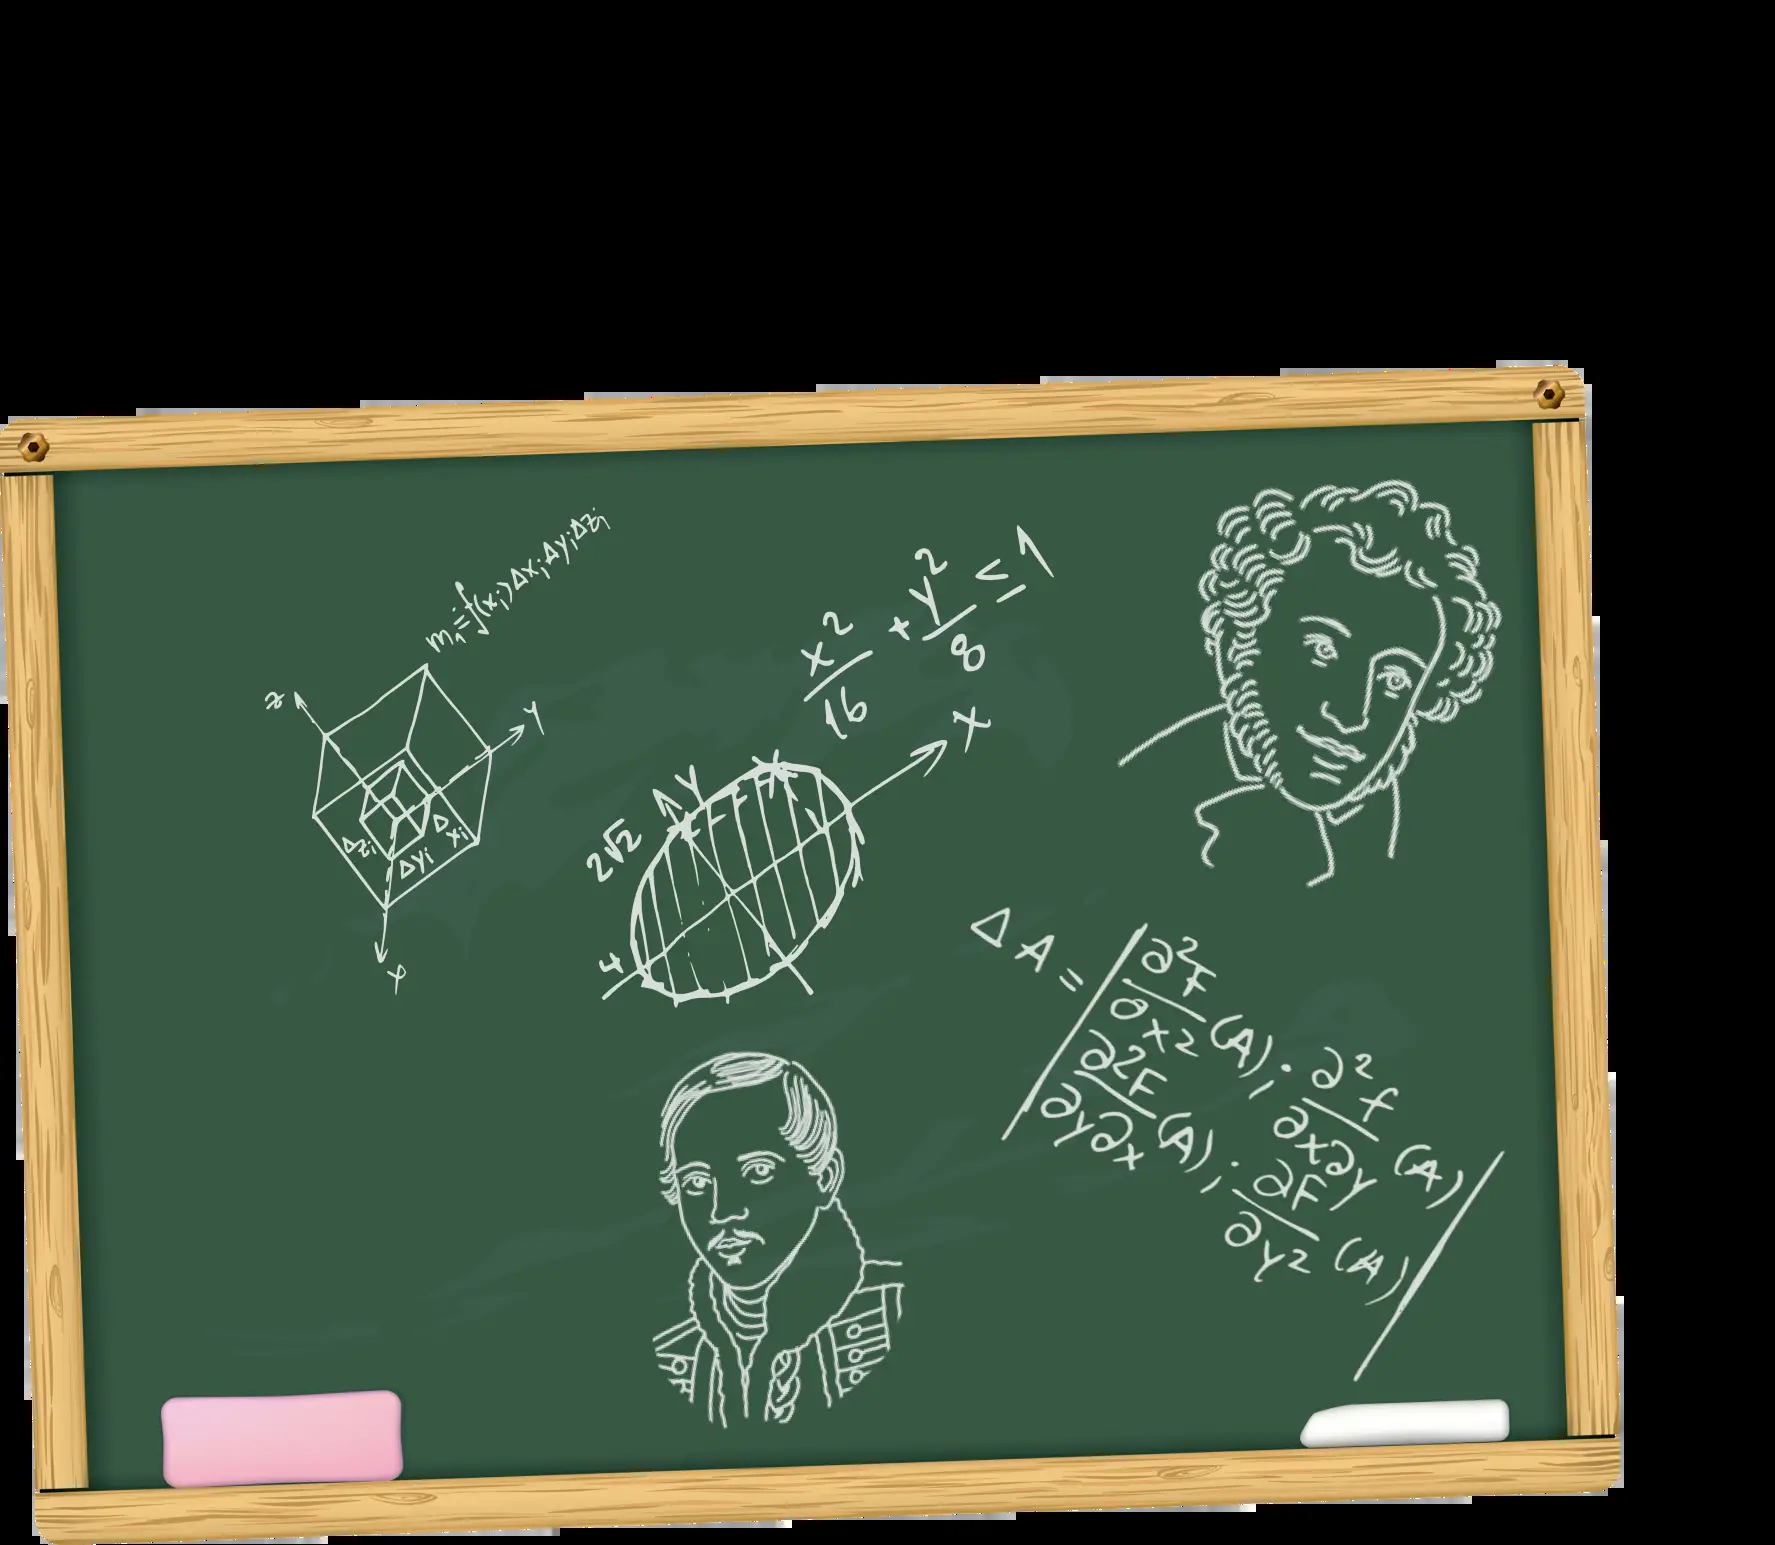 m₁=f(xᵢ)Δxᵢ Δyᵢ Δzᵢ
z
y
Δzᵢ
Δyᵢ
Δxᵢ
x²/16 + y²/8 ≤ 1
x
y
2√2
4
ΔA = | ∂²F/∂x2 (A); ∂²f/∂x∂y (A)
∂2F/∂y∂x (A); ∂F/∂y2 (A) |